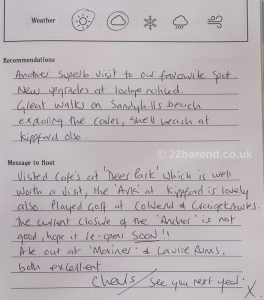 Weather
Recommendations
Another superb visit to our favourite spot.
New upgrades at lodge noticed.
Great walks on Sandyhills beach
exploring the caves, Shell beach at
Kippford also.
© 22barend.co.uk
Message to Host
Visited Cafe's at 'Deer Park' which is well
worth a visit, the 'Ark' at Kippford is lovely
also. Played Golf at Colvend & Craigieknowes.
The current closure of the 'Anchor' is not
good, hope it re-opens SOON!!
Ate out at 'Mariner' & Laurie Arms,
both excellent
Cheers / See you next year!
X